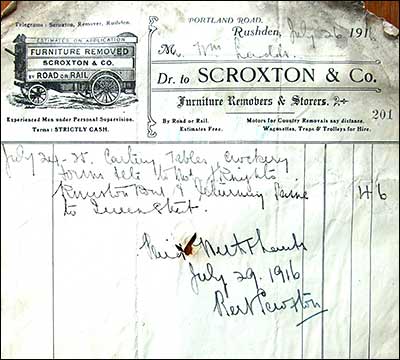 Telegrams: Scroxton, Remover, Rushden.
PORTLAND ROAD,
Rushden, July 26 1916
M Wm
ESTIMATES ON APPLICATION
FURNITURE REMOVED
SCROXTON & CO.
BY ROAD OR RAIL
Dr. to SCROXTON & Co.
Furniture Removers & Storers.
201
Experienced Men under Personal Supervision.
Terms: STRICTLY CASH.
By Road or Rail.
Estimates Free.
Motors for Country Removals any distance.
Wagonettes, Traps & Trolleys for Hire.
July 24-25. Carting Tables, Crockery
Forms
& Returning Same
4 6
to Queen Street.
With Thanks
July 29. 1916
Scroxton